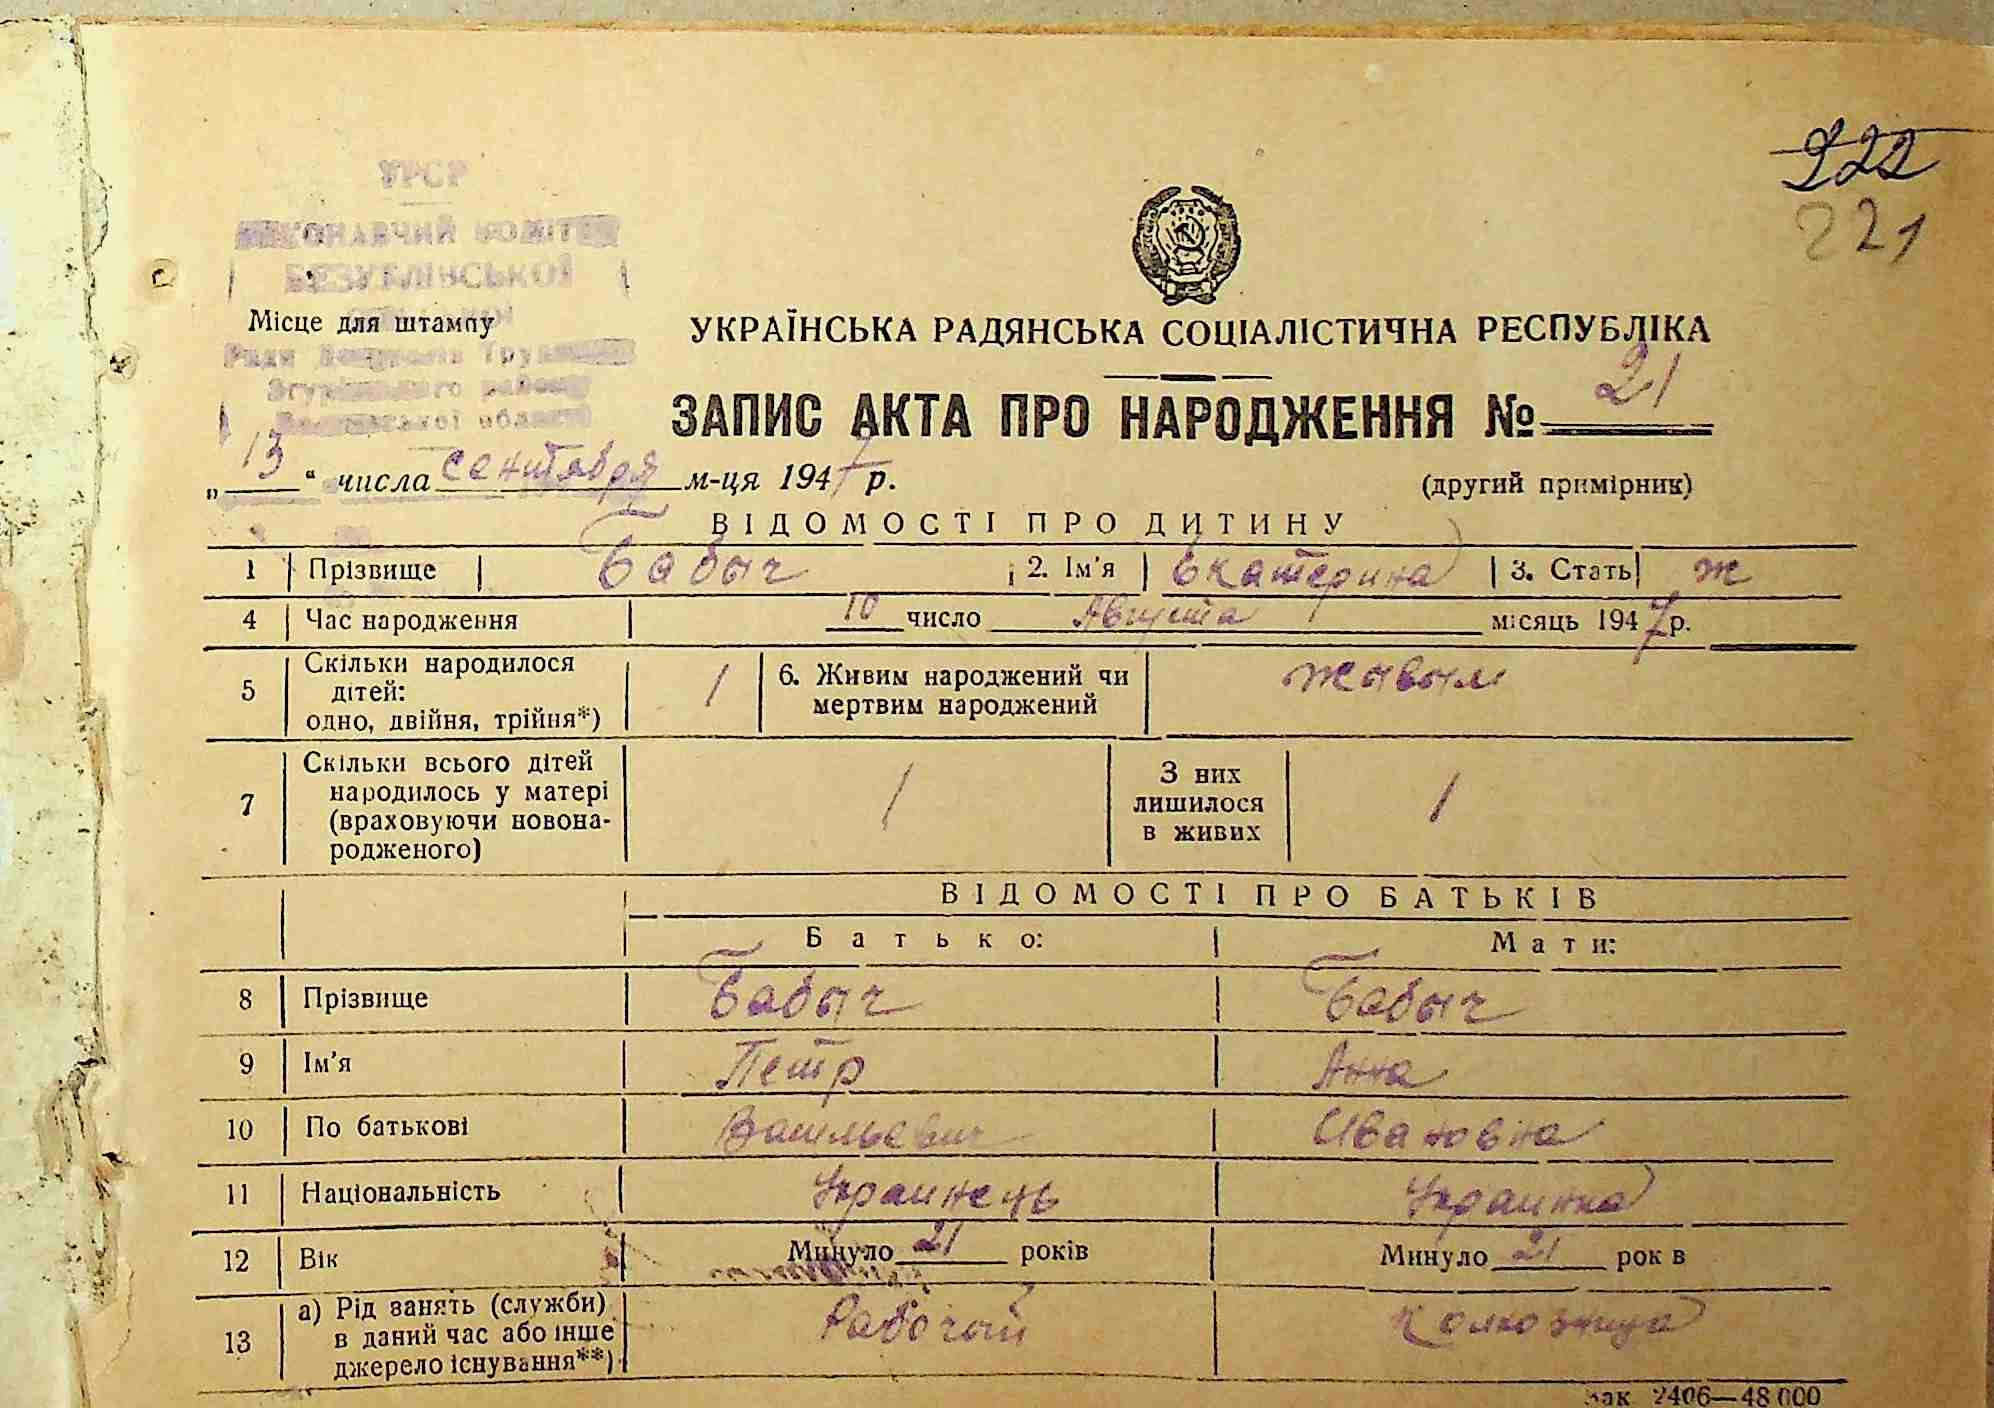 222
221
УРСР
ВИКОНАВЧИЙ КОМІТЕТ
БЕЗУГЛІВСЬКОЇ
Місце для штампу
Ради Депутатів Трудящих
Згурівського району
області
УКРАЇНСЬКА РАДЯНСЬКА СОЦІАЛІСТИЧНА РЕСПУБЛІКА
ЗАПИС АКТА ПРО НАРОДЖЕННЯ № 21
„13“ числа сентября м-ця 1947 р.
(другий примірник)
ВІДОМОСТІ ПРО ДИТИНУ
1 Прізвище Бабыч 2. Ім'я Екатерина 3. Стать ж
4 Час народження 10 число Августа місяць 1947 р.
5 Скільки народилося дітей: одно, двійня, трійня*) 1 6. Живим народжений чи мертвим народжений жывым
7 Скільки всього дітей народилось у матері (враховуючи новонародженого) 1 З них лишилося в живих 1
ВІДОМОСТІ ПРО БАТЬКІВ
Батько: Мати:
8 Прізвище Бабыч Бабыч
9 Ім'я Петр Анна
10 По батькові Васильевич Ивановна
11 Національність Украинець Украинка
12 Вік Минуло 21 років Минуло 21 рок в
13 а) Рід занять (служби) в даний час або інше джерело існування**) Рабочий Колхозница
Зак. 2406—48 000